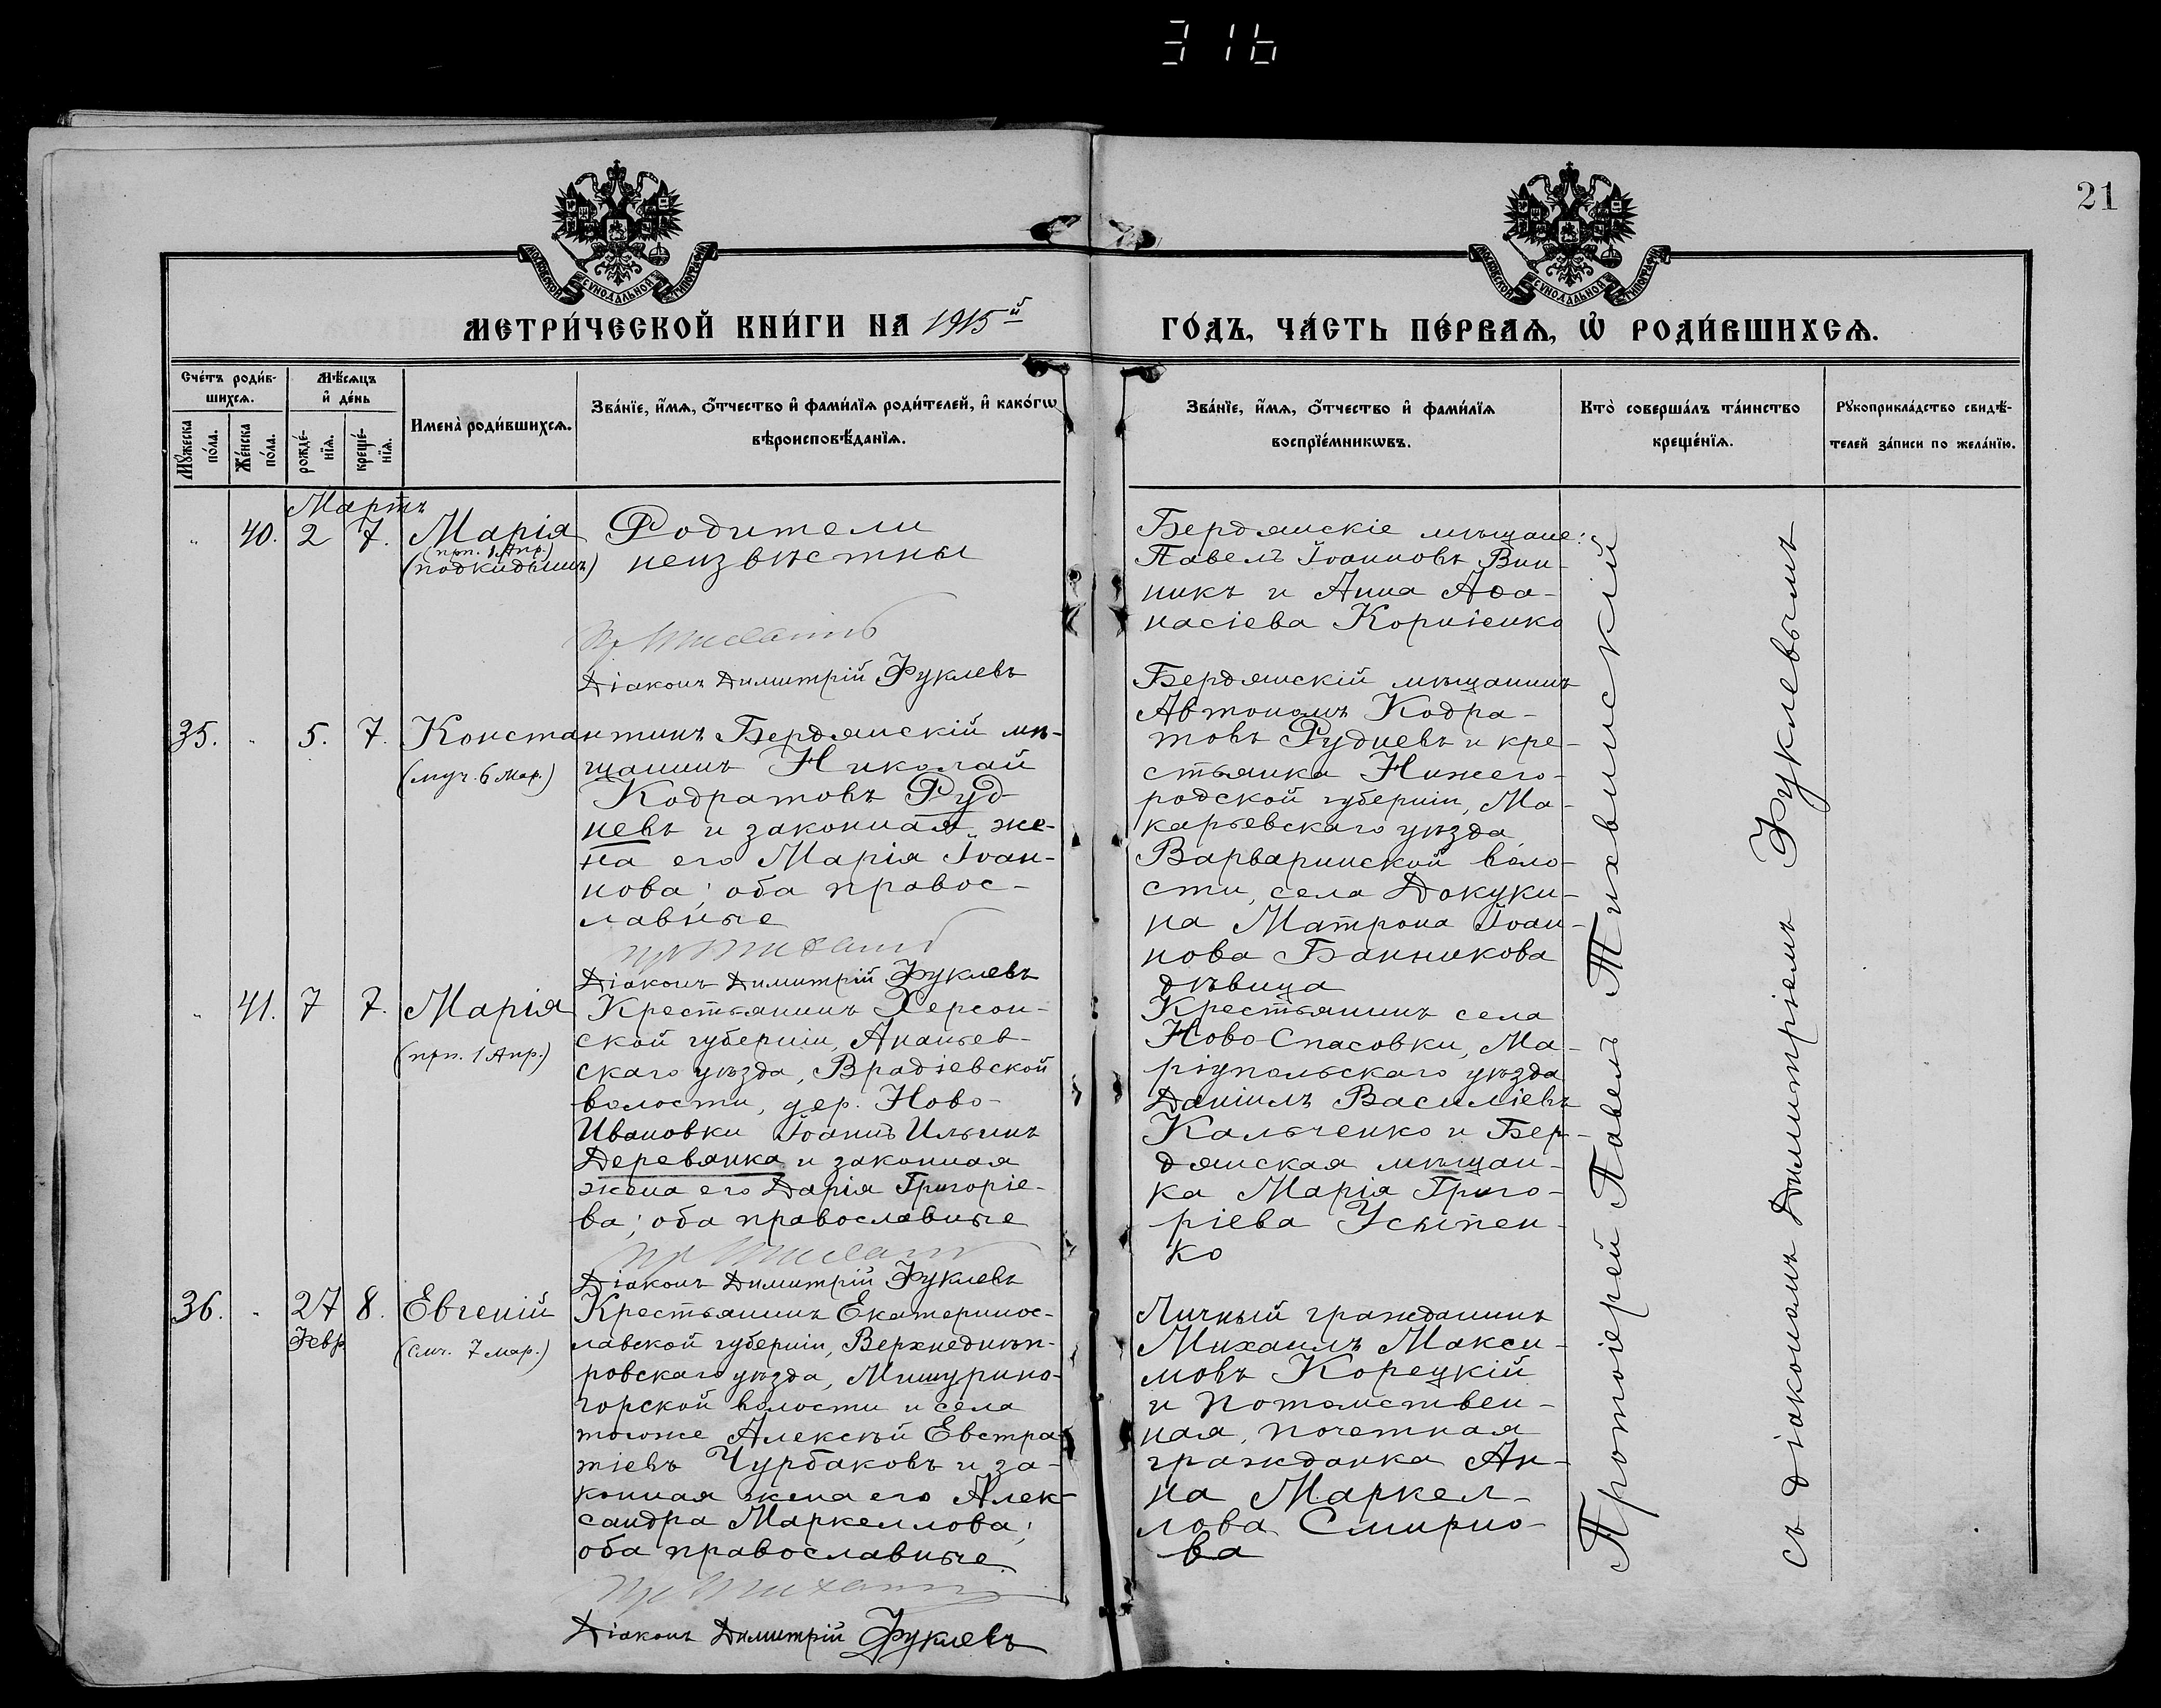 316
21
МОСКОВСКОЙ СУНОДАЛЬНОЙ ТИПОГРАФІИ
МОСКОВСКОЙ СУНОДАЛЬНОЙ ТИПОГРАФІИ
МЕТРИ́ЧЕСКОЙ КНИ́ГИ НА 1915й
ГО́ДЪ, ЧА́СТЬ ПЕ́РВАѦ, Ѡ҆ РОДИ́ВШИХСѦ.
Сче́тъ роди́в-
шихсѧ.
Мѣ́сѧцъ
и҆ де́нь
Мꙋ́жеска
по́ла.
Же́нска
по́ла.
рожде́-
нїѧ.
креще́-
нїѧ.
Имена̀ роди́вшихсѧ.
Зва́нїе, и҆́мѧ, ѻ҆́тчество и҆ фами́лїѧ роди́телей, и҆ како́гѡ
вѣроисповѣ́данїѧ.
Зва́нїе, и҆́мѧ, ѻ҆́тчество и҆ фами́лїѧ
воспрїе́мникѡвъ.
Кто̀ соверша́лъ та́инство
креще́нїѧ.
Рꙋкоприкла́дство свидѣ́-
телей за́писи по жела́нїю.
Мартъ
" 40. 2 7. Марія
(прп. 1 Апр.)
(подкидышъ)
Родители
неизвѣстны
Діаконъ Димитрій Фуклевъ
Бердянскіе мѣщане:
Павелъ Іоанновъ Вин-
никъ и Анна Афа-
насіева Корніенко
35. " 5. 7. Константинъ
(муч. 6 Мар.)
Бердянскій мѣ-
щанинъ Николай
Кодратовъ Руд-
невъ и законная же-
на его Марія Іоан-
нова; оба правос-
лавные
Діаконъ Димитрій Фуклевъ
Бердянскій мѣщанинъ
Автономъ Кодра-
товъ Рудневъ и кре-
стьянка Нижего-
родской губерніи, Ма-
карьевскаго уѣзда
Варваринской воло-
сти, села Докуки-
на Матрона Іоан-
нова Банникова
дѣвица
" 41. 7 7. Марія
(прп. 1 Апр.)
Крестьянинъ Херсон-
ской губерніи, Ананьев-
скаго уѣзда, Врадіевской
волости, дер. Ново-
Ивановки Іоаннъ Ильинъ
Деревянка и законная
жена его Дарія Григоріе-
ва; оба православные
Діаконъ Димитрій Фуклевъ
Крестьянинъ села
Ново-Спасовки, Ма-
ріупольскаго уѣзда
Даніилъ Василіевъ
Кальченко и Бер-
дянская мѣщан-
ка Марія Григо-
ріева Усыпен-
ко
36. " 27 8. Евгеній
Февр
(смч. 7 мар.)
Крестьянинъ Екатеринос-
лавской губерніи, Верхнеднѣп-
ровскаго уѣзда, Мишурино-
горской волости и села
тогоже Алексѣй Евстра-
тіевъ Чурбаковъ и за-
конная жена его Алек-
сандра Маркеллова;
оба православные
Діаконъ Димитрій Фуклевъ
Личный гражданинъ
Михаилъ Макси-
мовъ Корецкій
и Потомствен-
ная, почетная
гражданка Ан-
на Маркел-
лова Смирно-
ва
Протоіерей Павелъ Тихвинскій
съ діакономъ Димитріемъ Фуклевымъ